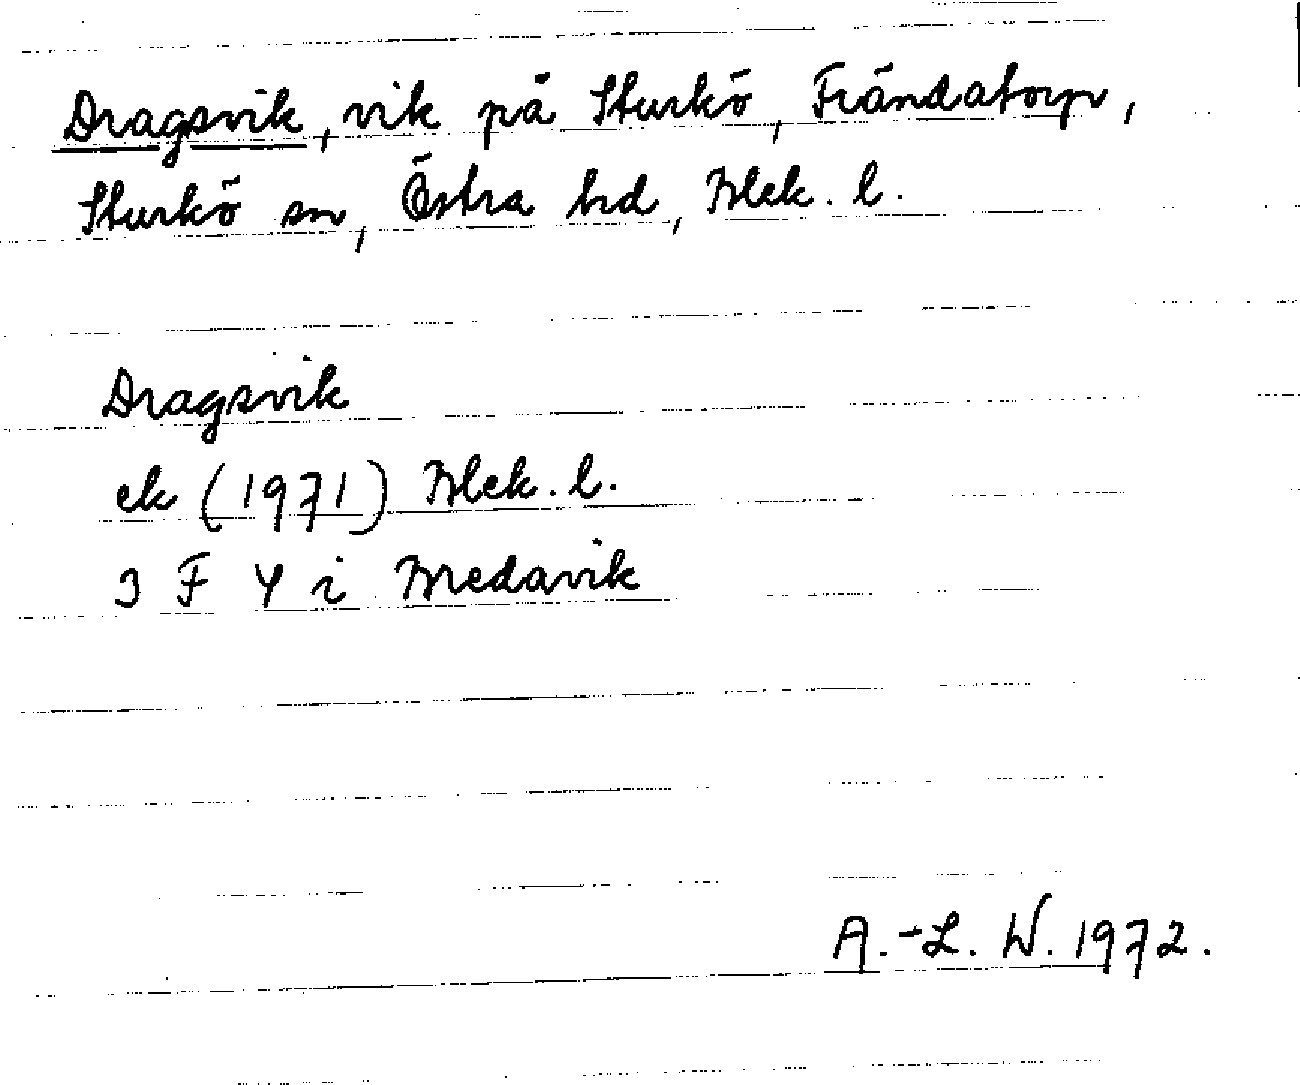 Dragsvik, vik på Sturkö, Frändatorp,
Sturkö sn, Östra hd, Blek. l.
Dragsvik
ek (1971) Blek. l.
3 F Y i Bredavik
A.-L. W. 1972.